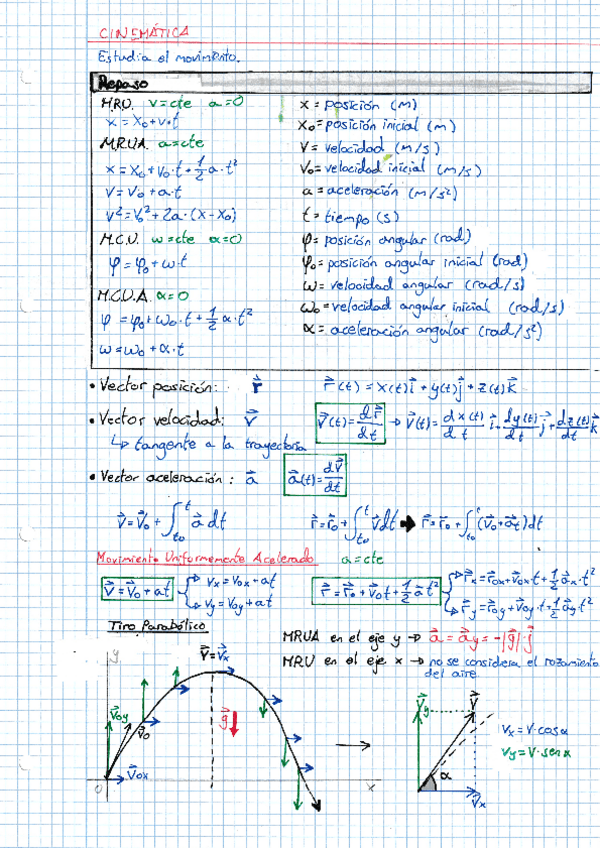 CINEMÁTICA
Estudia el movimiento.
Repaso
MRU. v=cte a=0
x = x₀+v·t
M.R.U.A. a=cte
x = x₀+v₀·t+½a·t²
v = v₀+a·t
v² = v₀²+2a·(x-x₀)
M.C.U. ω=cte α=0
φ = φ₀+ω·t
M.C.U.A. α=0
φ = φ₀+ω₀·t+½α·t²
ω = ω₀+α·t
x = posición (m)
x₀ = posición inicial (m)
v = velocidad (m/s)
v₀ = velocidad inicial (m/s)
a = aceleración (m/s²)
t = tiempo (s)
φ = posición angular (rad)
φ₀ = posición angular inicial (rad)
ω = velocidad angular (rad/s)
ω₀ = velocidad angular inicial (rad/s)
α = aceleración angular (rad/s²)
• Vector posición: r⃗ r⃗(t) = x(t)i⃗+y(t)j⃗+z(t)k⃗
• Vector velocidad: v⃗ v⃗(t)=dr⃗/dt → v⃗(t)=dx(t)/dt i⃗+dy(t)/dt j⃗+dz(t)/dt k⃗
↳ tangente a la trayectoria
• Vector aceleración: a⃗ a⃗(t)=dv⃗/dt
v⃗=v⃗₀+∫ₜ₀ᵗ a⃗ dt r⃗=r⃗₀+∫ₜ₀ᵗ v⃗dt → r⃗=r⃗₀+∫ₜ₀ᵗ(v⃗₀+a⃗t)dt
Movimiento Uniformemente Acelerado a=cte
v⃗=v⃗₀+at → vₓ=v₀ₓ+at
→ v_y=v₀y+at
r⃗=r⃗₀+v⃗₀t+½a⃗t² → r⃗ₓ=r⃗₀ₓ+v⃗₀ₓt+½a⃗ₓ·t²
→ r⃗_y=r⃗₀y+v⃗₀y·t+½a⃗_yt²
Tiro Parabólico
MRUA en el eje y → a⃗=a⃗_y=-|g⃗|·j⃗
MRU en el eje x → no se considera el rozamiento
del aire.
y
v⃗=v⃗ₓ
v⃗₀y
v⃗₀
v⃗₀ₓ
g⃗
0
x
v⃗_y
v⃗
α
v⃗ₓ
vₓ=v·cosα
v_y=v·senα